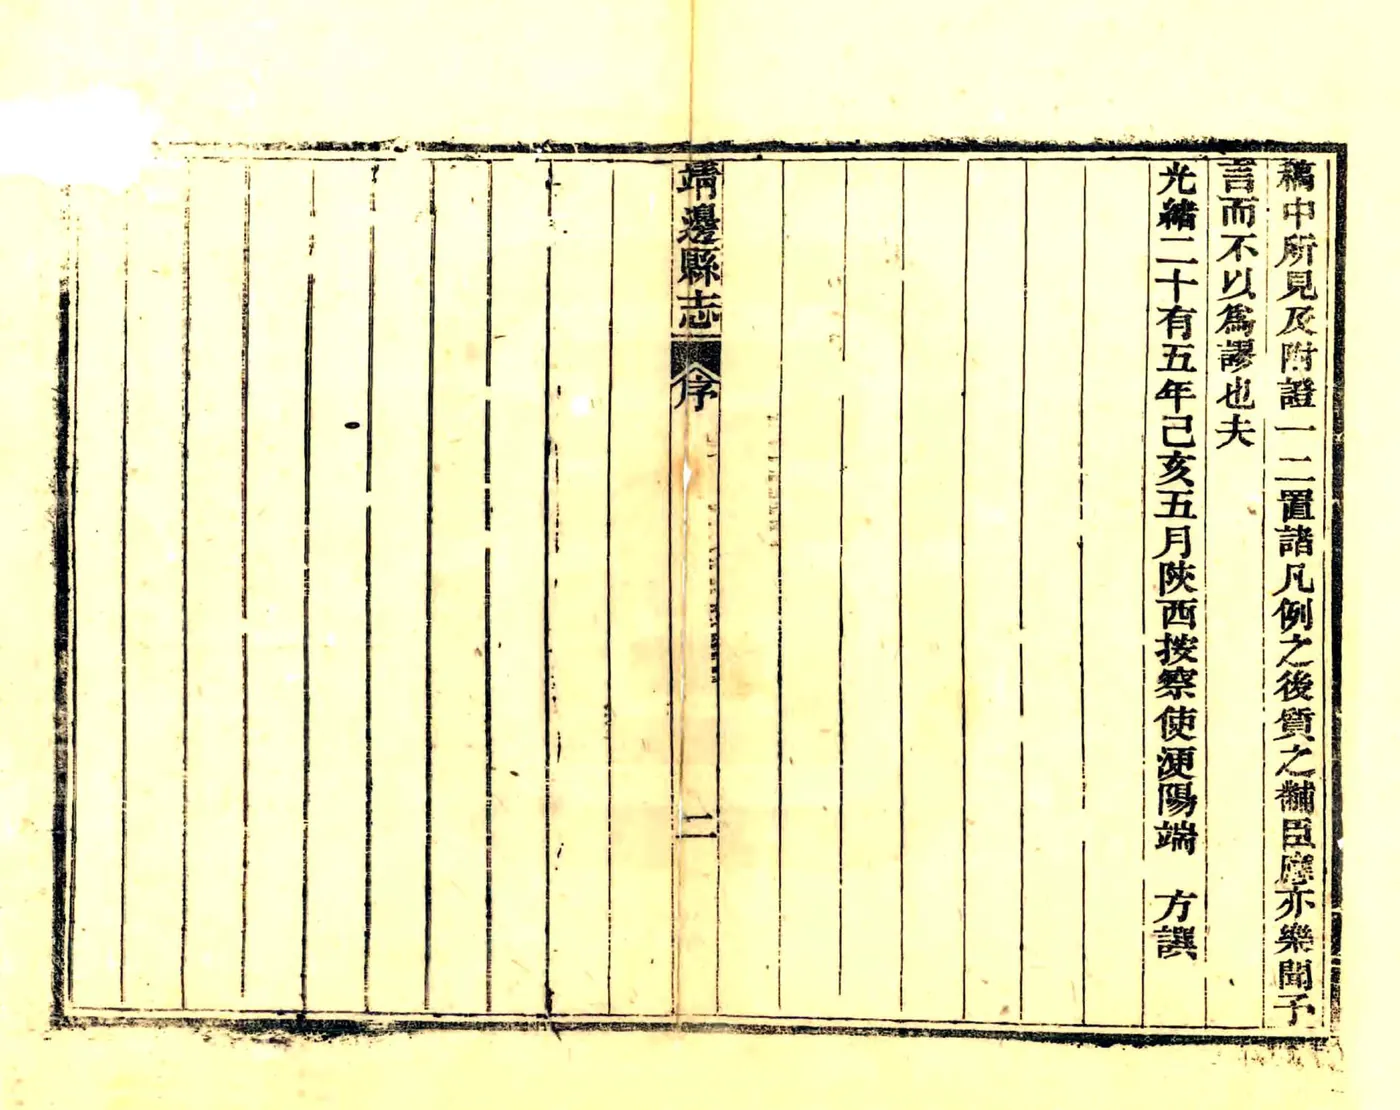 稿中所見及附證一二置諸凡例之後質之黼臣應亦樂聞予
言而不以爲謬也夫
光緒二十有五年己亥五月陝西按察使浭陽端　方譔
靖邊縣志
序
二